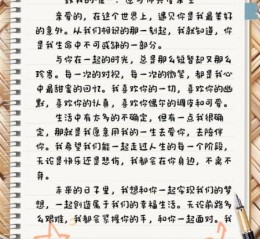 亲爱的，在这个世界上，遇见你是我最美好
的意外。从我们相识的那一刻起，我就知道，你
是我生命中不可或缺的一部分。
与你在一起的时光，总是那么短暂却又那么
珍贵。每一次的对视，每一次的微笑，都是我心
中最甜蜜的回忆。我喜欢你的一切，喜欢你的幽
默，喜欢你的认真，喜欢你偶尔的调皮和可爱。
生活中有太多的不确定，但有一点我很确
定，那就是我愿意用我的一生去爱你，去陪伴
你。我希望我们能一起走过人生的每一个阶段，
无论是快乐还是悲伤，我都会在你身边，不离不
弃。
未来的日子里，我想和你一起实现我们的梦
想，一起创造属于我们的幸福生活。无论前路多
么艰难，我都会紧握你的手，和你一起面对。我